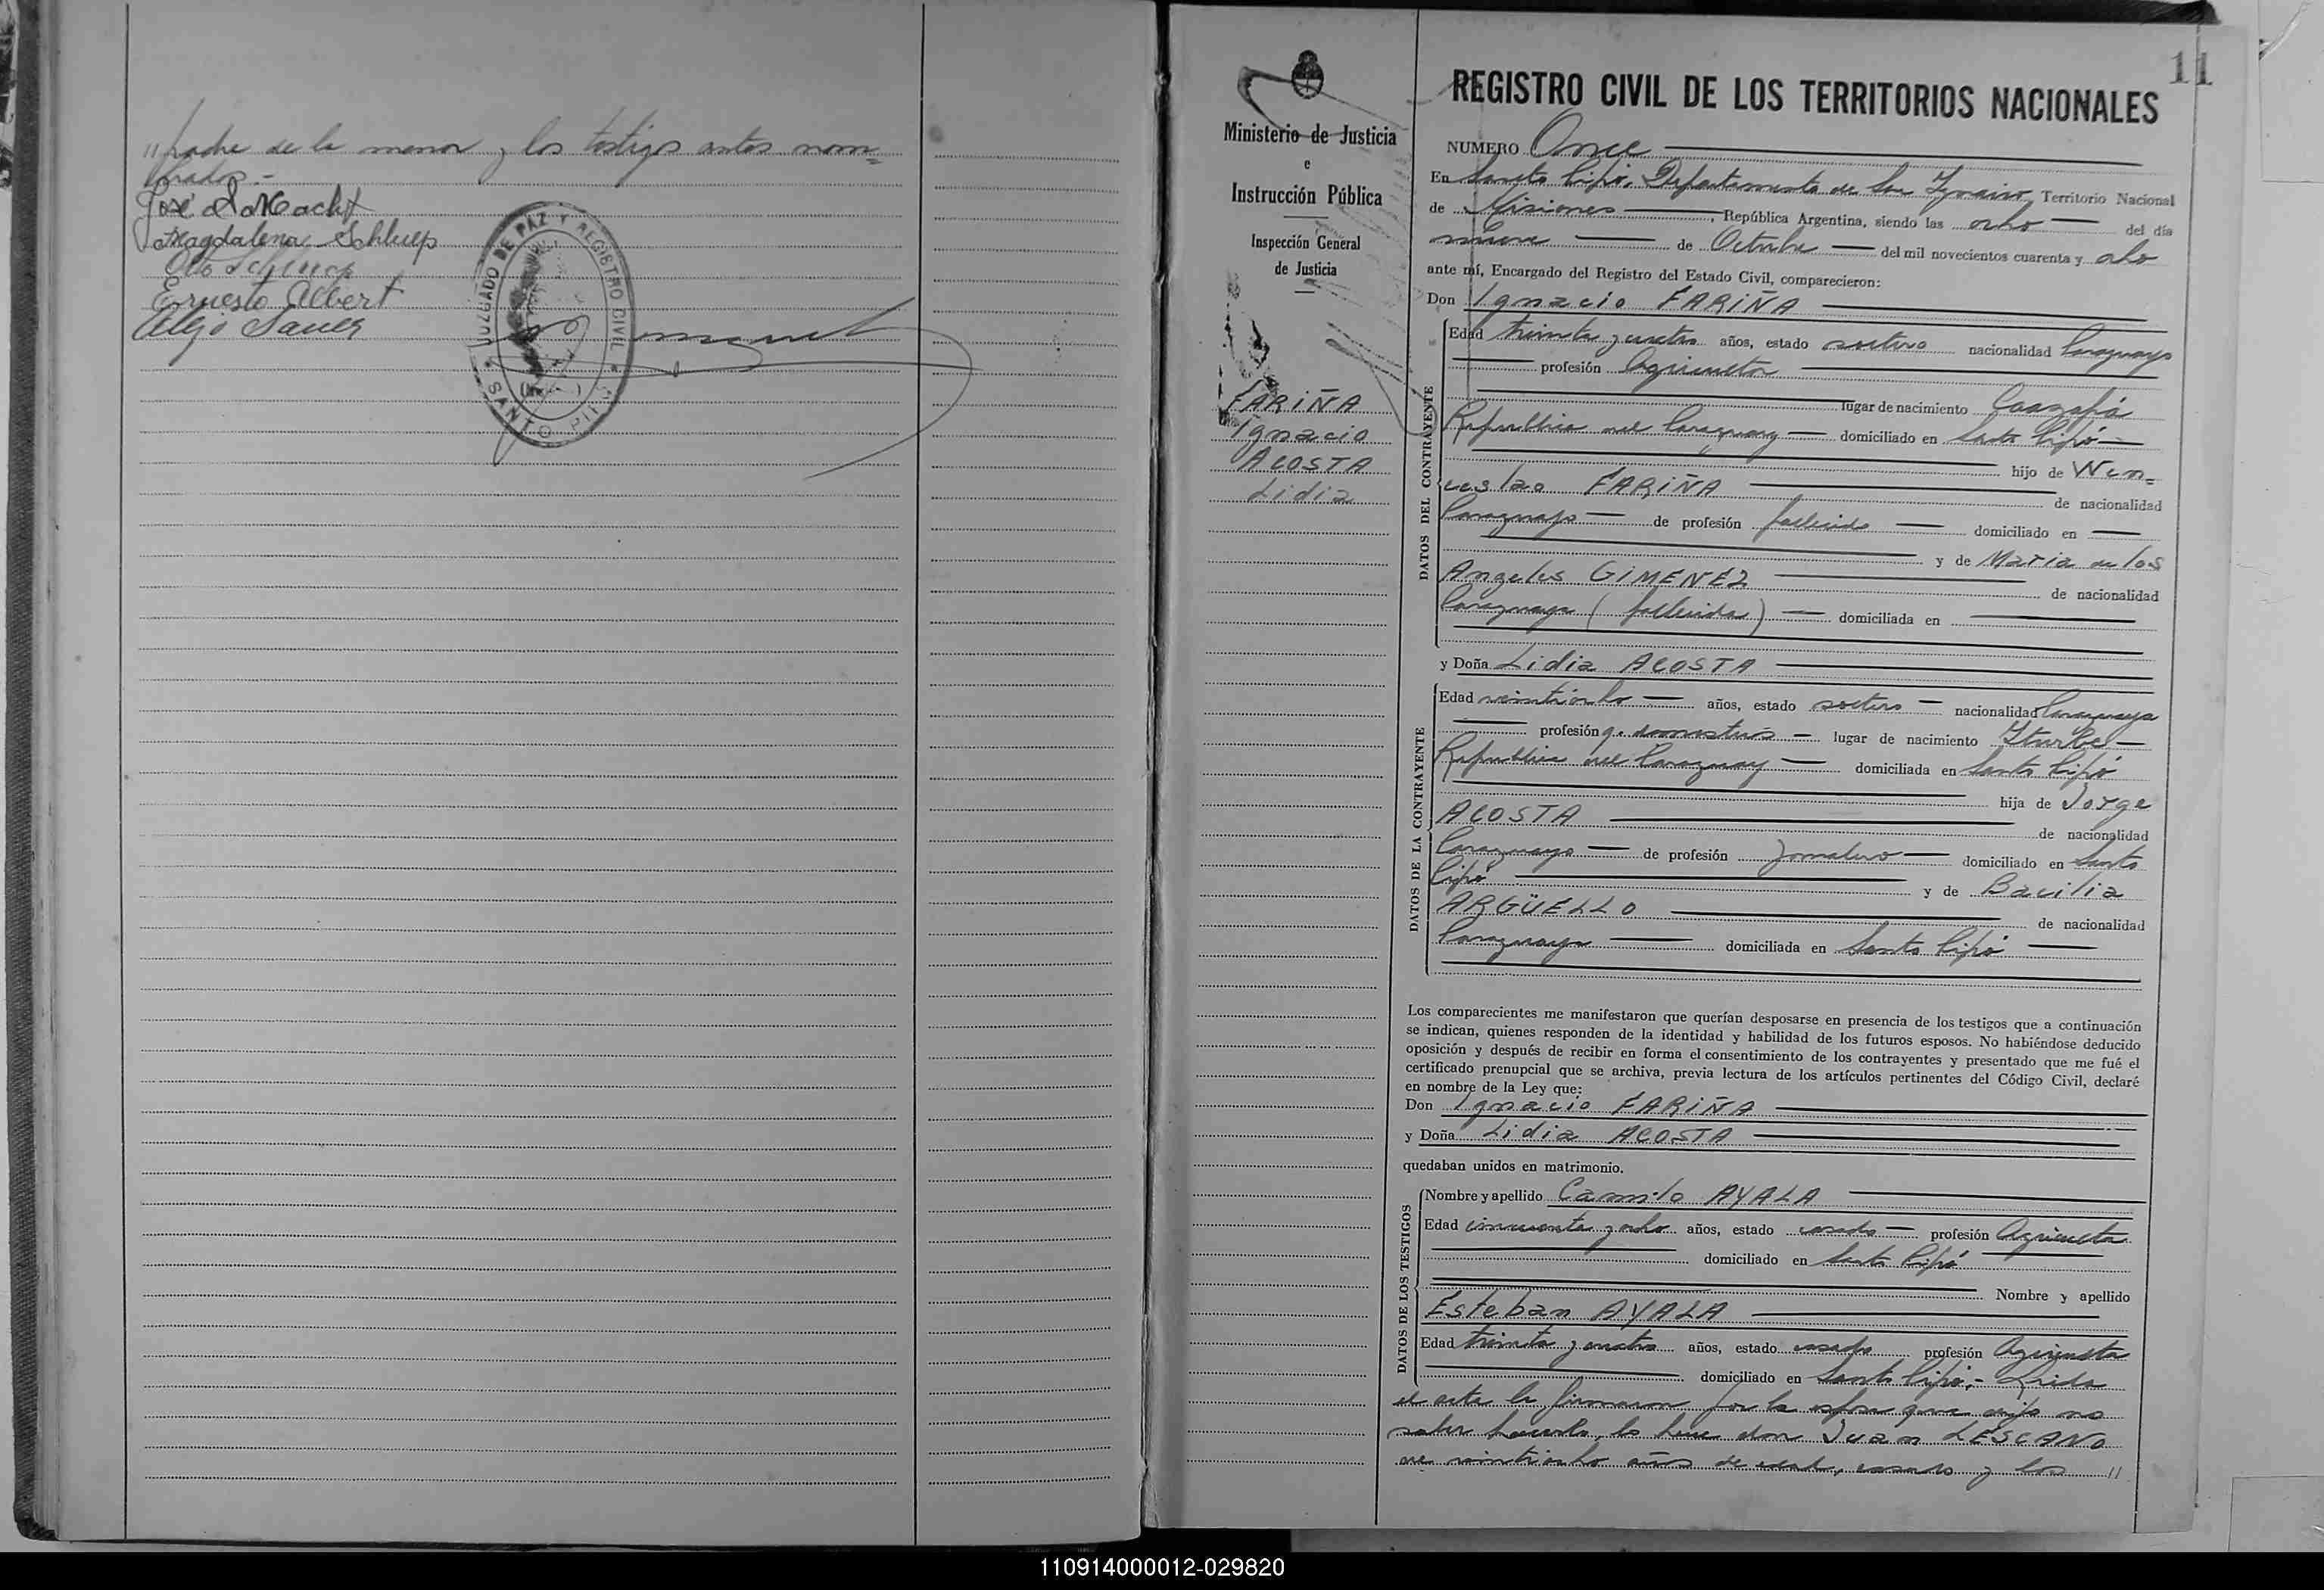 "padre de la menor y los testigos antes nom=
brados.-
José
Magdalena Schluep
Otto
Ernesto Albert
Alejo Sauer
JUZGADO DE PAZ Y REGISTRO CIVIL
SANTO PIPÓ
11
Ministerio de Justicia
e
Instrucción Pública
Inspección General
de Justicia
FARIÑA
Ignacio
ACOSTA
Lidia
REGISTRO CIVIL DE LOS TERRITORIOS NACIONALES
NUMERO Once
En Santo Pipó, Departamento de San Ignacio Territorio Nacional
de Misiones, República Argentina, siendo las ocho del día
nueve de Octubre del mil novecientos cuarenta y ocho
ante mí, Encargado del Registro del Estado Civil, comparecieron:
Don Ignacio FARIÑA
DATOS DEL CONTRAYENTE
Edad treinta y cuatro años, estado soltero nacionalidad Paraguayo
profesión Agricultor
lugar de nacimiento Caazapá
República del Paraguay domiciliado en Santo Pipó
hijo de Wen=
ceslao FARIÑA
de nacionalidad
Paraguayo de profesión fallecido domiciliado en
y de Maria de los
Angeles GIMENEZ
de nacionalidad
Paraguaya (fallecida) domiciliada en
y Doña Lidia ACOSTA
DATOS DE LA CONTRAYENTE
Edad veintiocho años, estado soltera nacionalidad Paraguaya
profesión q. domésticos lugar de nacimiento Iturbe
República del Paraguay domiciliada en Santo Pipó
hija de Jorge
ACOSTA
de nacionalidad
Paraguayo de profesión Jornalero domiciliado en Santo
Pipó y de Bacilia
ARGÜELLO
de nacionalidad
Paraguaya domiciliada en Santo Pipó
Los comparecientes me manifestaron que querían desposarse en presencia de los testigos que a continuación
se indican, quienes responden de la identidad y habilidad de los futuros esposos. No habiéndose deducido
oposición y después de recibir en forma el consentimiento de los contrayentes y presentado que me fué el
certificado prenupcial que se archiva, previa lectura de los artículos pertinentes del Código Civil, declaré
en nombre de la Ley que:
Don Ignacio FARIÑA
y Doña Lidia ACOSTA
quedaban unidos en matrimonio.
DATOS DE LOS TESTIGOS
Nombre y apellido Camilo AYALA
Edad cincuenta y ocho años, estado casado profesión Agricultor
domiciliado en Santo Pipó
Nombre y apellido
Esteban AYALA
Edad treinta y cuatro años, estado casado profesión Agricultor
domiciliado en Santo Pipó.- Leida
el acta la firmaron por la esposa que dijo no
saber hacerlo, lo hace don Juan LESCANO
de veintiocho años de edad, casado y los "
110914000012-029820